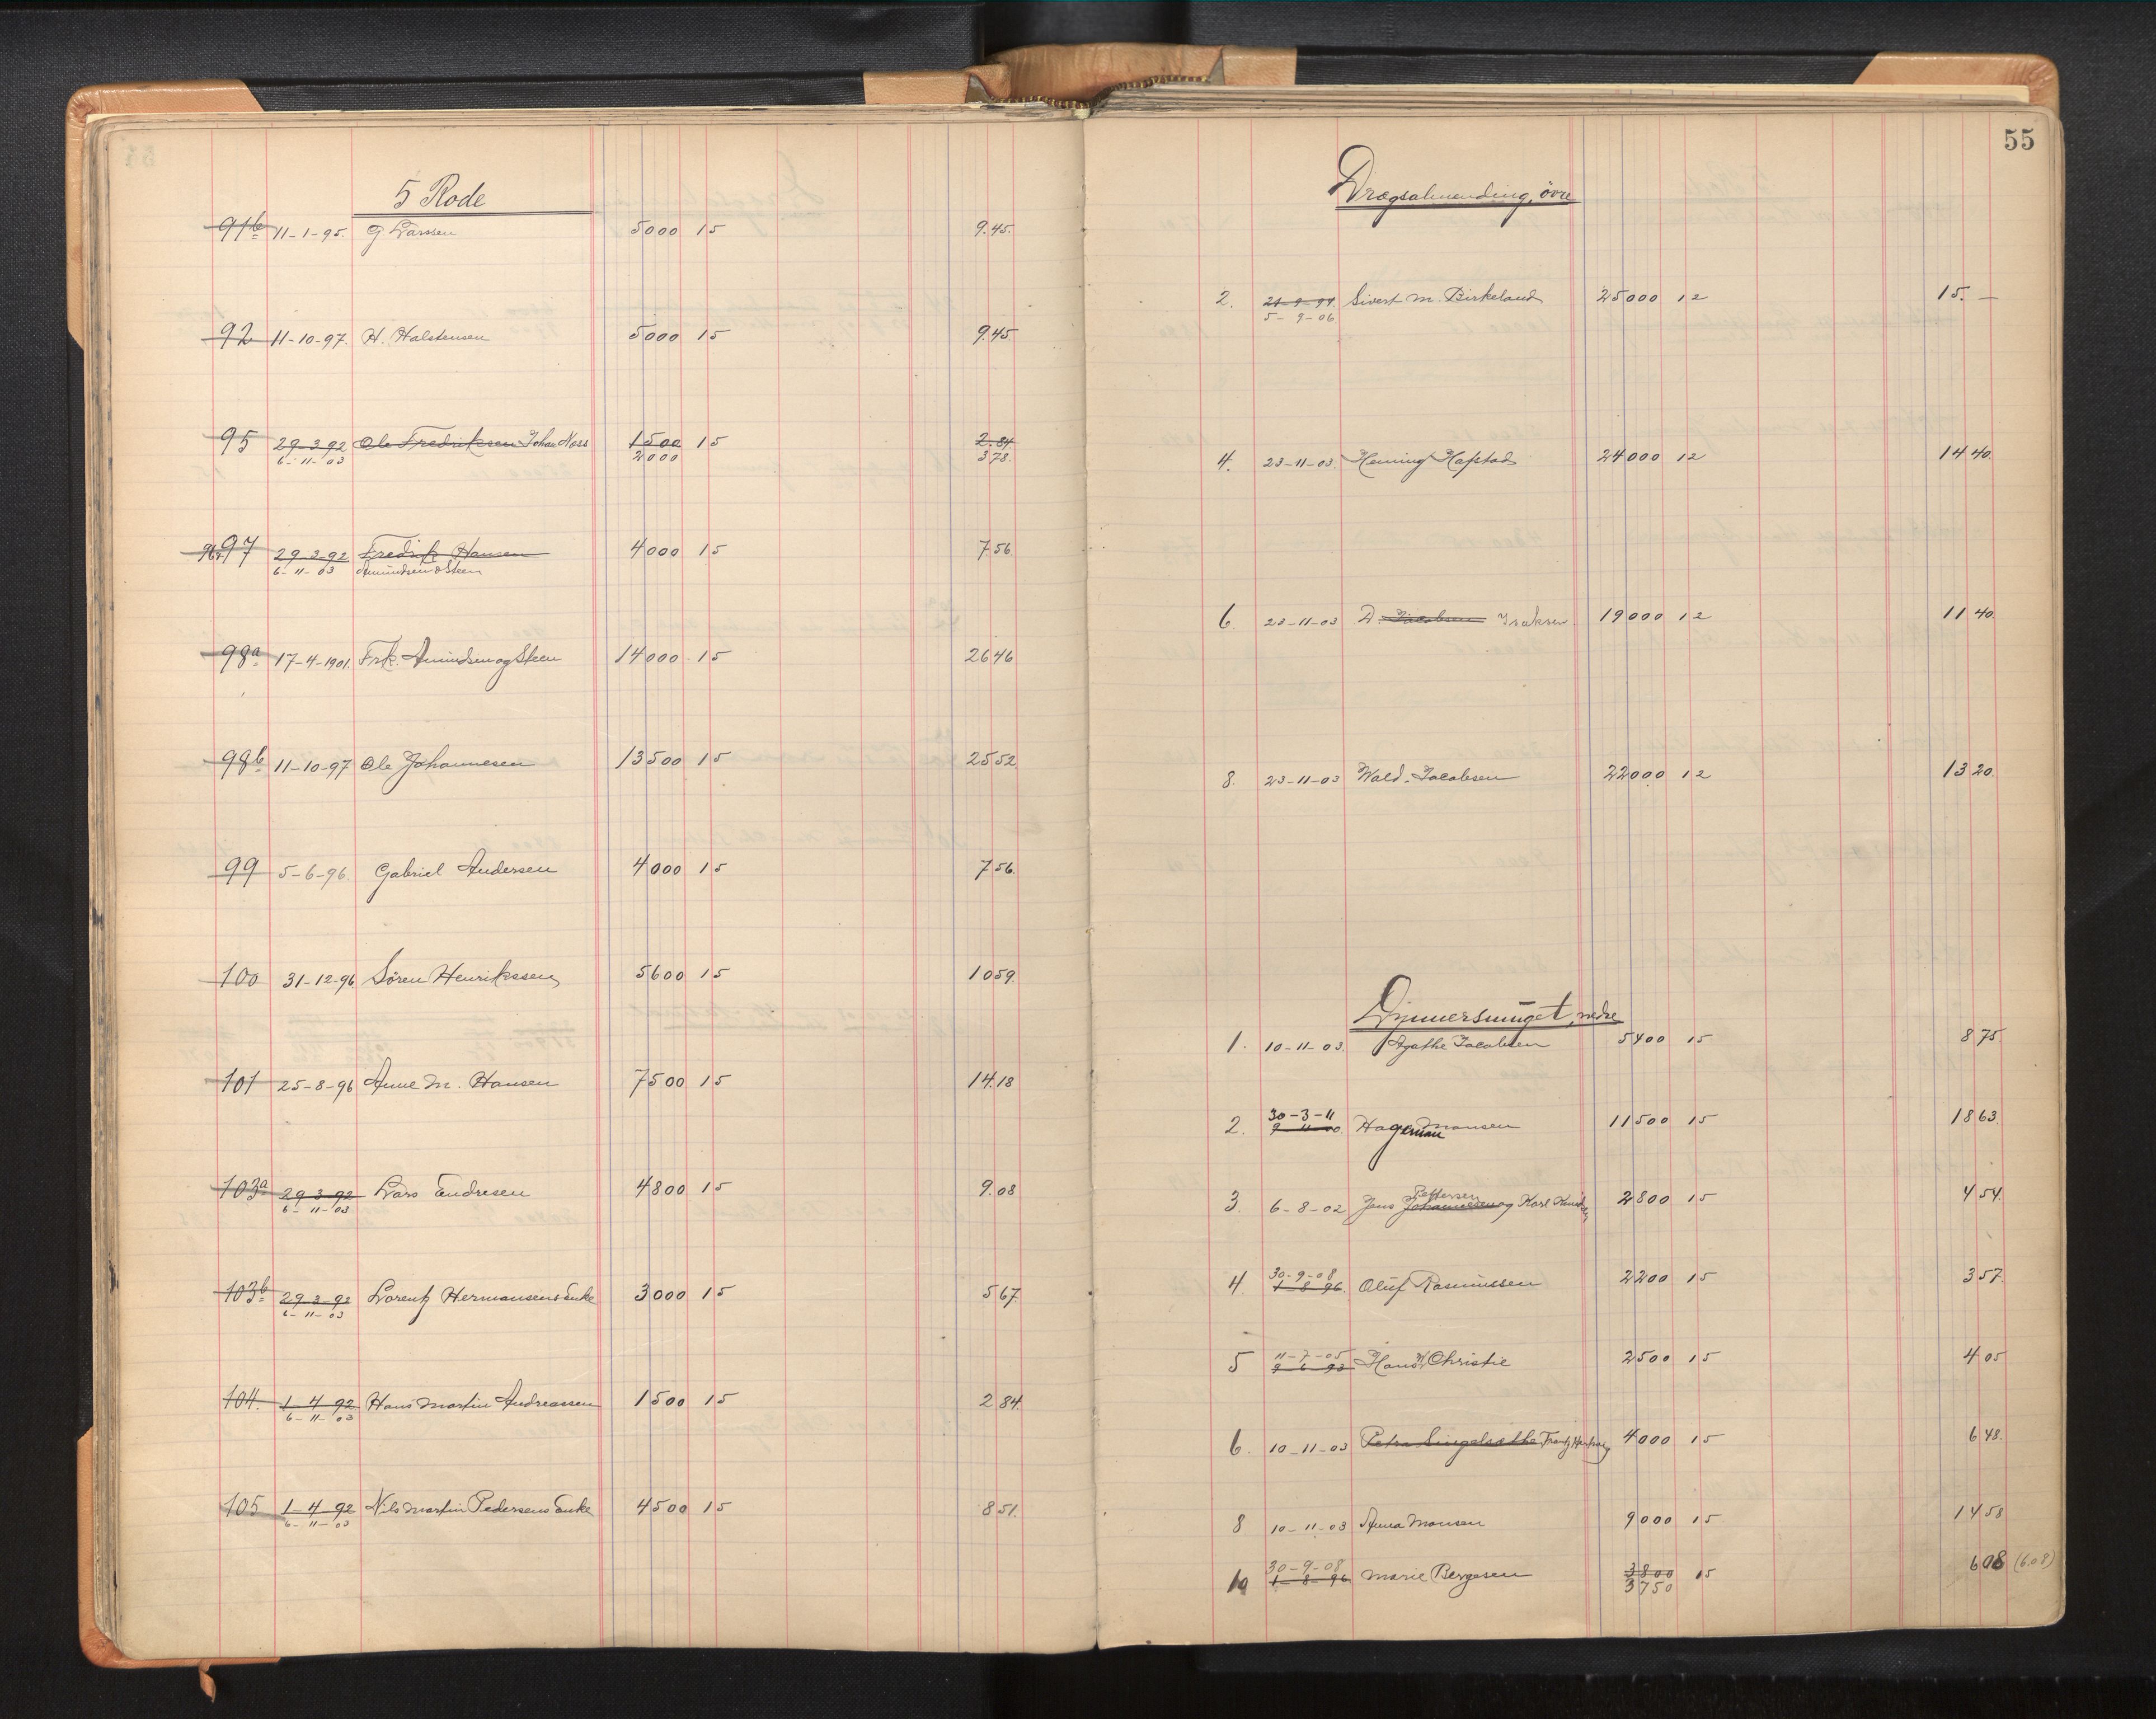 5 Rode
91b 11-1-95. G Larssen 5000 15 9.45.
92 11-10-97. H. Halstensen 5000 15 9.45.
95 29-3-92 Ole Fredriksen Johan Ness 1500 15 2.84
6-11-03 2000 378.
96.97 29-3-92 Fredrik Hansen 4000 15 7 56
6-11-03 Amundsen & Steen
98a 17-4-1901. Frk. Amundsen og Steen 14000 15 26 46
98b 11-10-97 Ole Johannesen 13500 15 25 52
99 5-6-96. Gabriel Andersen 4000 15 7 56.
100 31-12-96. Sören Henrikssen 5600 15 10 59.
101 25-8-96 Anne M. Hansen 7500 15 14.18
103a 29-3-92 Lars Endresen 4800 15 9.08
6-11-03
103b 29-3-92 Lorentz Hermansens Enke 3000 15 5 67
6-11-03
104. 1-4-92 Hans Martin Andreassen 1500 15 2 84.
6-11-03
105 1-4-92 Nils Martin Pedersens Enke 4500 15 8 51.
6-11-03
55
Dragsalmending, övre
2. 21-9-94 Sivert M. Birkeland 25000 12 15. —
5-9-06
4. 23-11-03. Heming Hafstad 24000 12 14 40.
6. 23-11-03 D. Jacobsen Isaksen 19000 12 11 40.
8. 23-11-03 Wald. Jacobsen 22000 12 13 20.
nedre
1. 10-11-03. Agathe Jacobsen 5400 15 8 75.
30-3-11
2. 9-11-00. Hageman Monsen 11500 15 18 63.
Pettersen
3. 6-8-02 Jens Johannesen og Karl Knudsen 2800 15 4 54.
30-9-08
4 1-8-96. Oluf Rasmussen 2200 15 3 57.
11-7-05
5 9-6-93 Hans W Christie 2500 15 4 05
6. 10-11-03 Petra Frantz 4000 15 6 48.
8 10-11-03 Anna Monsen 9000 15 14 58
30-9-08
10 1-8-96 Marie Bergesen 3800 15 608 (6.08)
3750